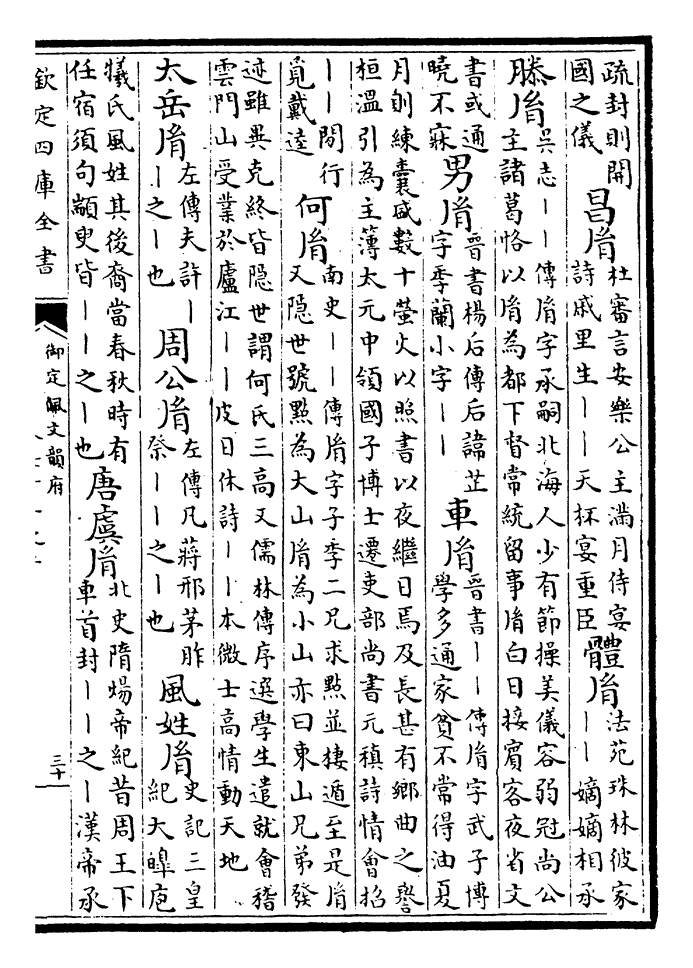 疏封則開國之儀昌胤杜審言安樂公主滿月侍宴詩戚里生丨丨天杯宴重臣體胤法苑珠林彼家丨丨嫡嫡相承
滕胤吳志丨丨傳胤字承嗣北海人少有節操美儀容弱冠尚公主諸葛恪以胤為都下督常統留事胤白日接賓客夜省文
書或通曉不寐男胤晉書楊后傳后諱芷字季蘭小字丨丨車胤晉書丨丨傳胤字武子博學多通家貧不常得油夏
月則練囊盛數十螢火以照書以夜繼日焉及長甚有鄉曲之譽桓溫引為主簿太元中領國子博士遷吏部尚書元稹詩情會招
丨丨間行覓戴逵何胤南史丨丨傳胤字子季二兄求點並棲遁至是胤又隱世號點為大山胤為小山亦曰東山兄弟發
迹雖異克終皆隱世謂何氏三高又儒林傳序選學生遣就會稽雲門山受業於廬江丨丨皮日休詩丨丨本微士高情動天地
太岳胤左傳夫許丨丨之丨也周公胤左傳凡蔣邢茅胙祭丨丨之丨也風姓胤史記三皇紀大皥庖
犧氏風姓其後裔當春秋時有任宿須句顓臾皆丨丨之丨也唐虞胤北史隋煬帝紀昔周王下車首封丨丨之丨漢帝承
欽定四庫全書
御定佩文韻府
三十